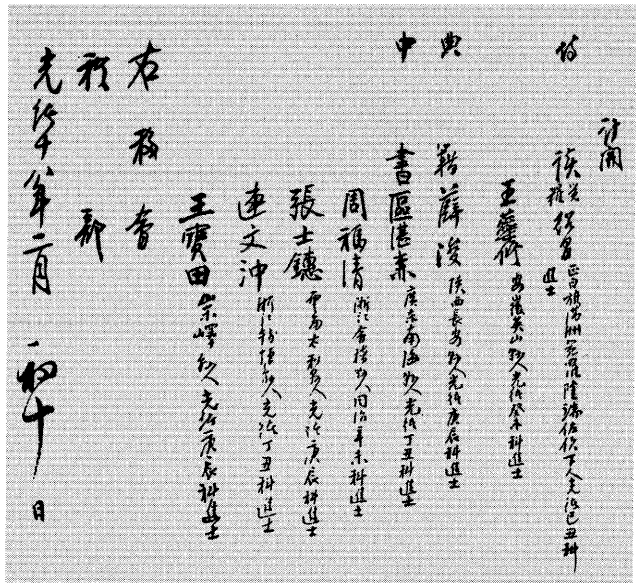 計開
侍讀 正白旗滿洲 隆瑞佐領下人光緒己丑科進士
王 安徽英山縣人光緒癸未科進士
典籍薛浚陝西長安縣人光緒庚辰科進士
中書區湛森廣東南海縣人光緒丁丑科進士
周福清浙江會稽縣人同治辛未科進士
張士鏸雲南太和縣人光緒庚辰科進士
連文沖浙江錢塘縣人光緒丁丑科進士
王寶田山東嶧縣人光緒庚辰科進士
右移會
禮部
光緒十八年二月初十日